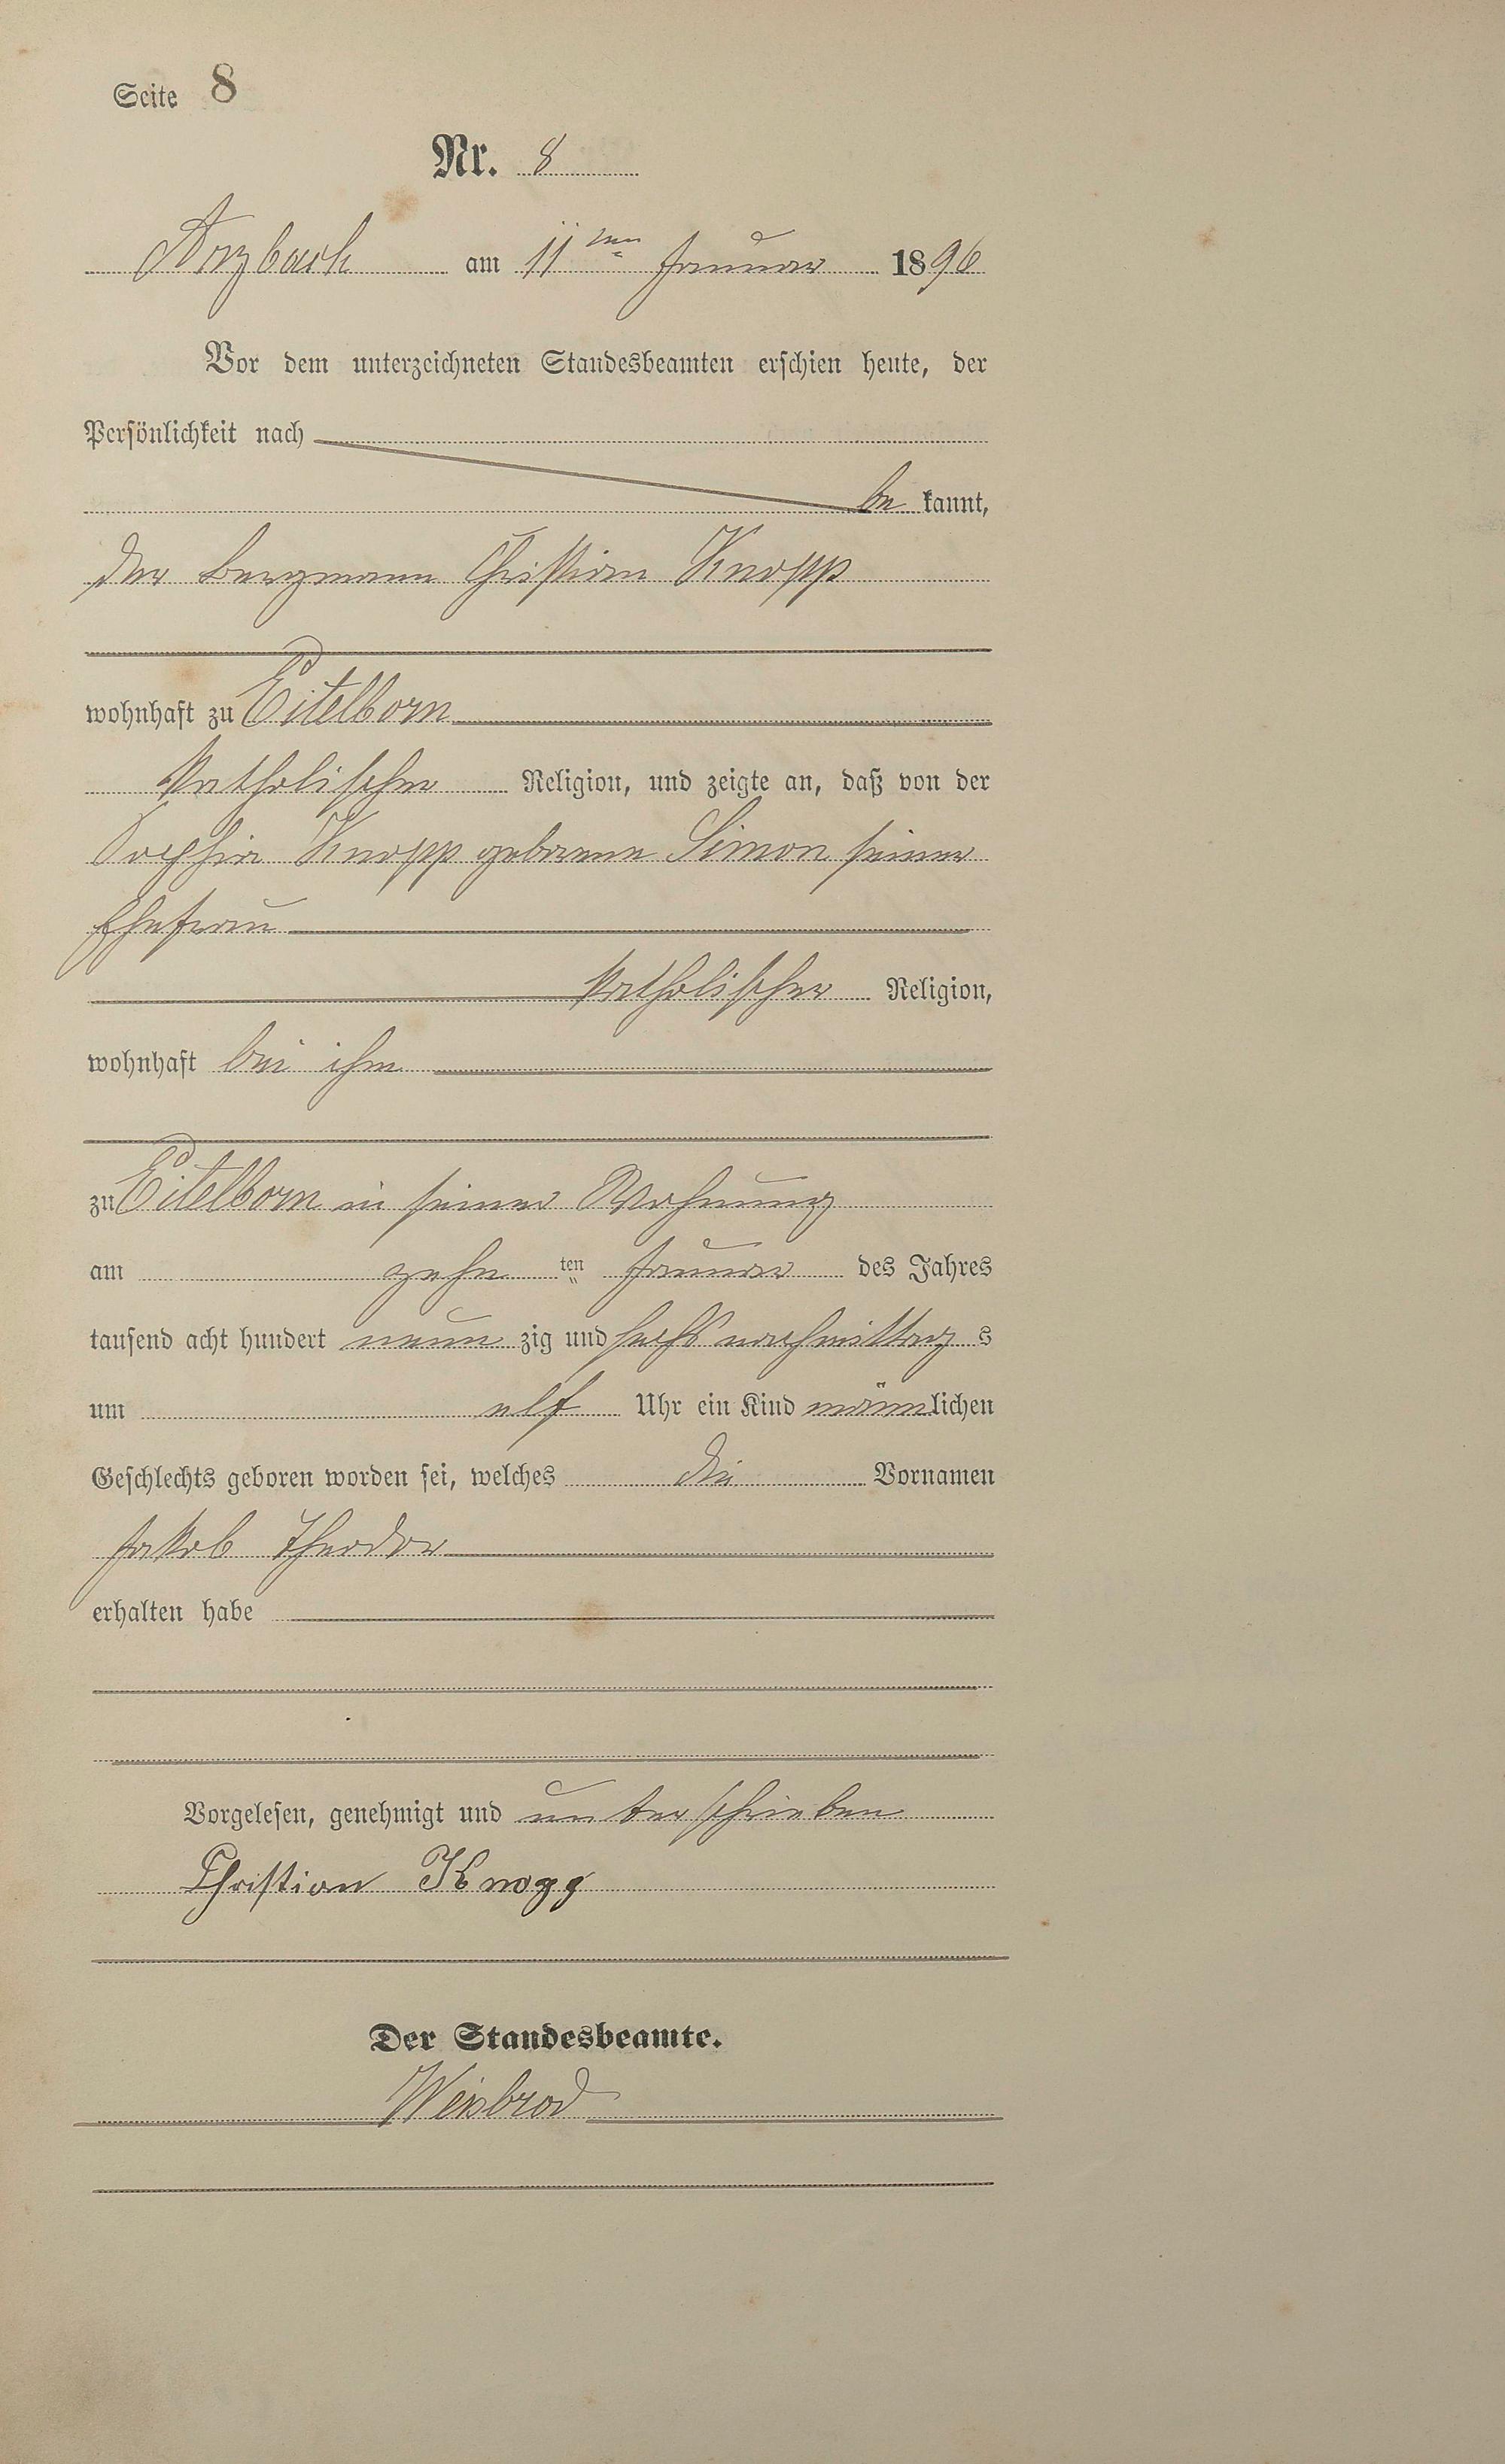 Seite 8
Nr. 8
Arzbach am 11ten Januar 1896
Vor dem unterzeichneten Standesbeamten erschien heute, der
Persönlichkeit nach
be kannt,
der Bergmann Christian Knopp
wohnhaft zu Eitelborn
katholischer Religion, und zeigte an, daß von der
Sophia Knopp geborene Simon seiner
Ehefrau
katholischer Religion,
wohnhaft bei ihm
zu Eitelborn in seiner Wohnung
am zehn ten Januar des Jahres
tausend acht hundert neun zig und sechs nachmittag s
um elf Uhr ein Kind männlichen
Geschlechts geboren worden sei, welches die Vornamen
Jakob Theodor
erhalten habe
Vorgelesen, genehmigt und unterschrieben
Christian Knopp
Der Standesbeamte.
Weisbrod